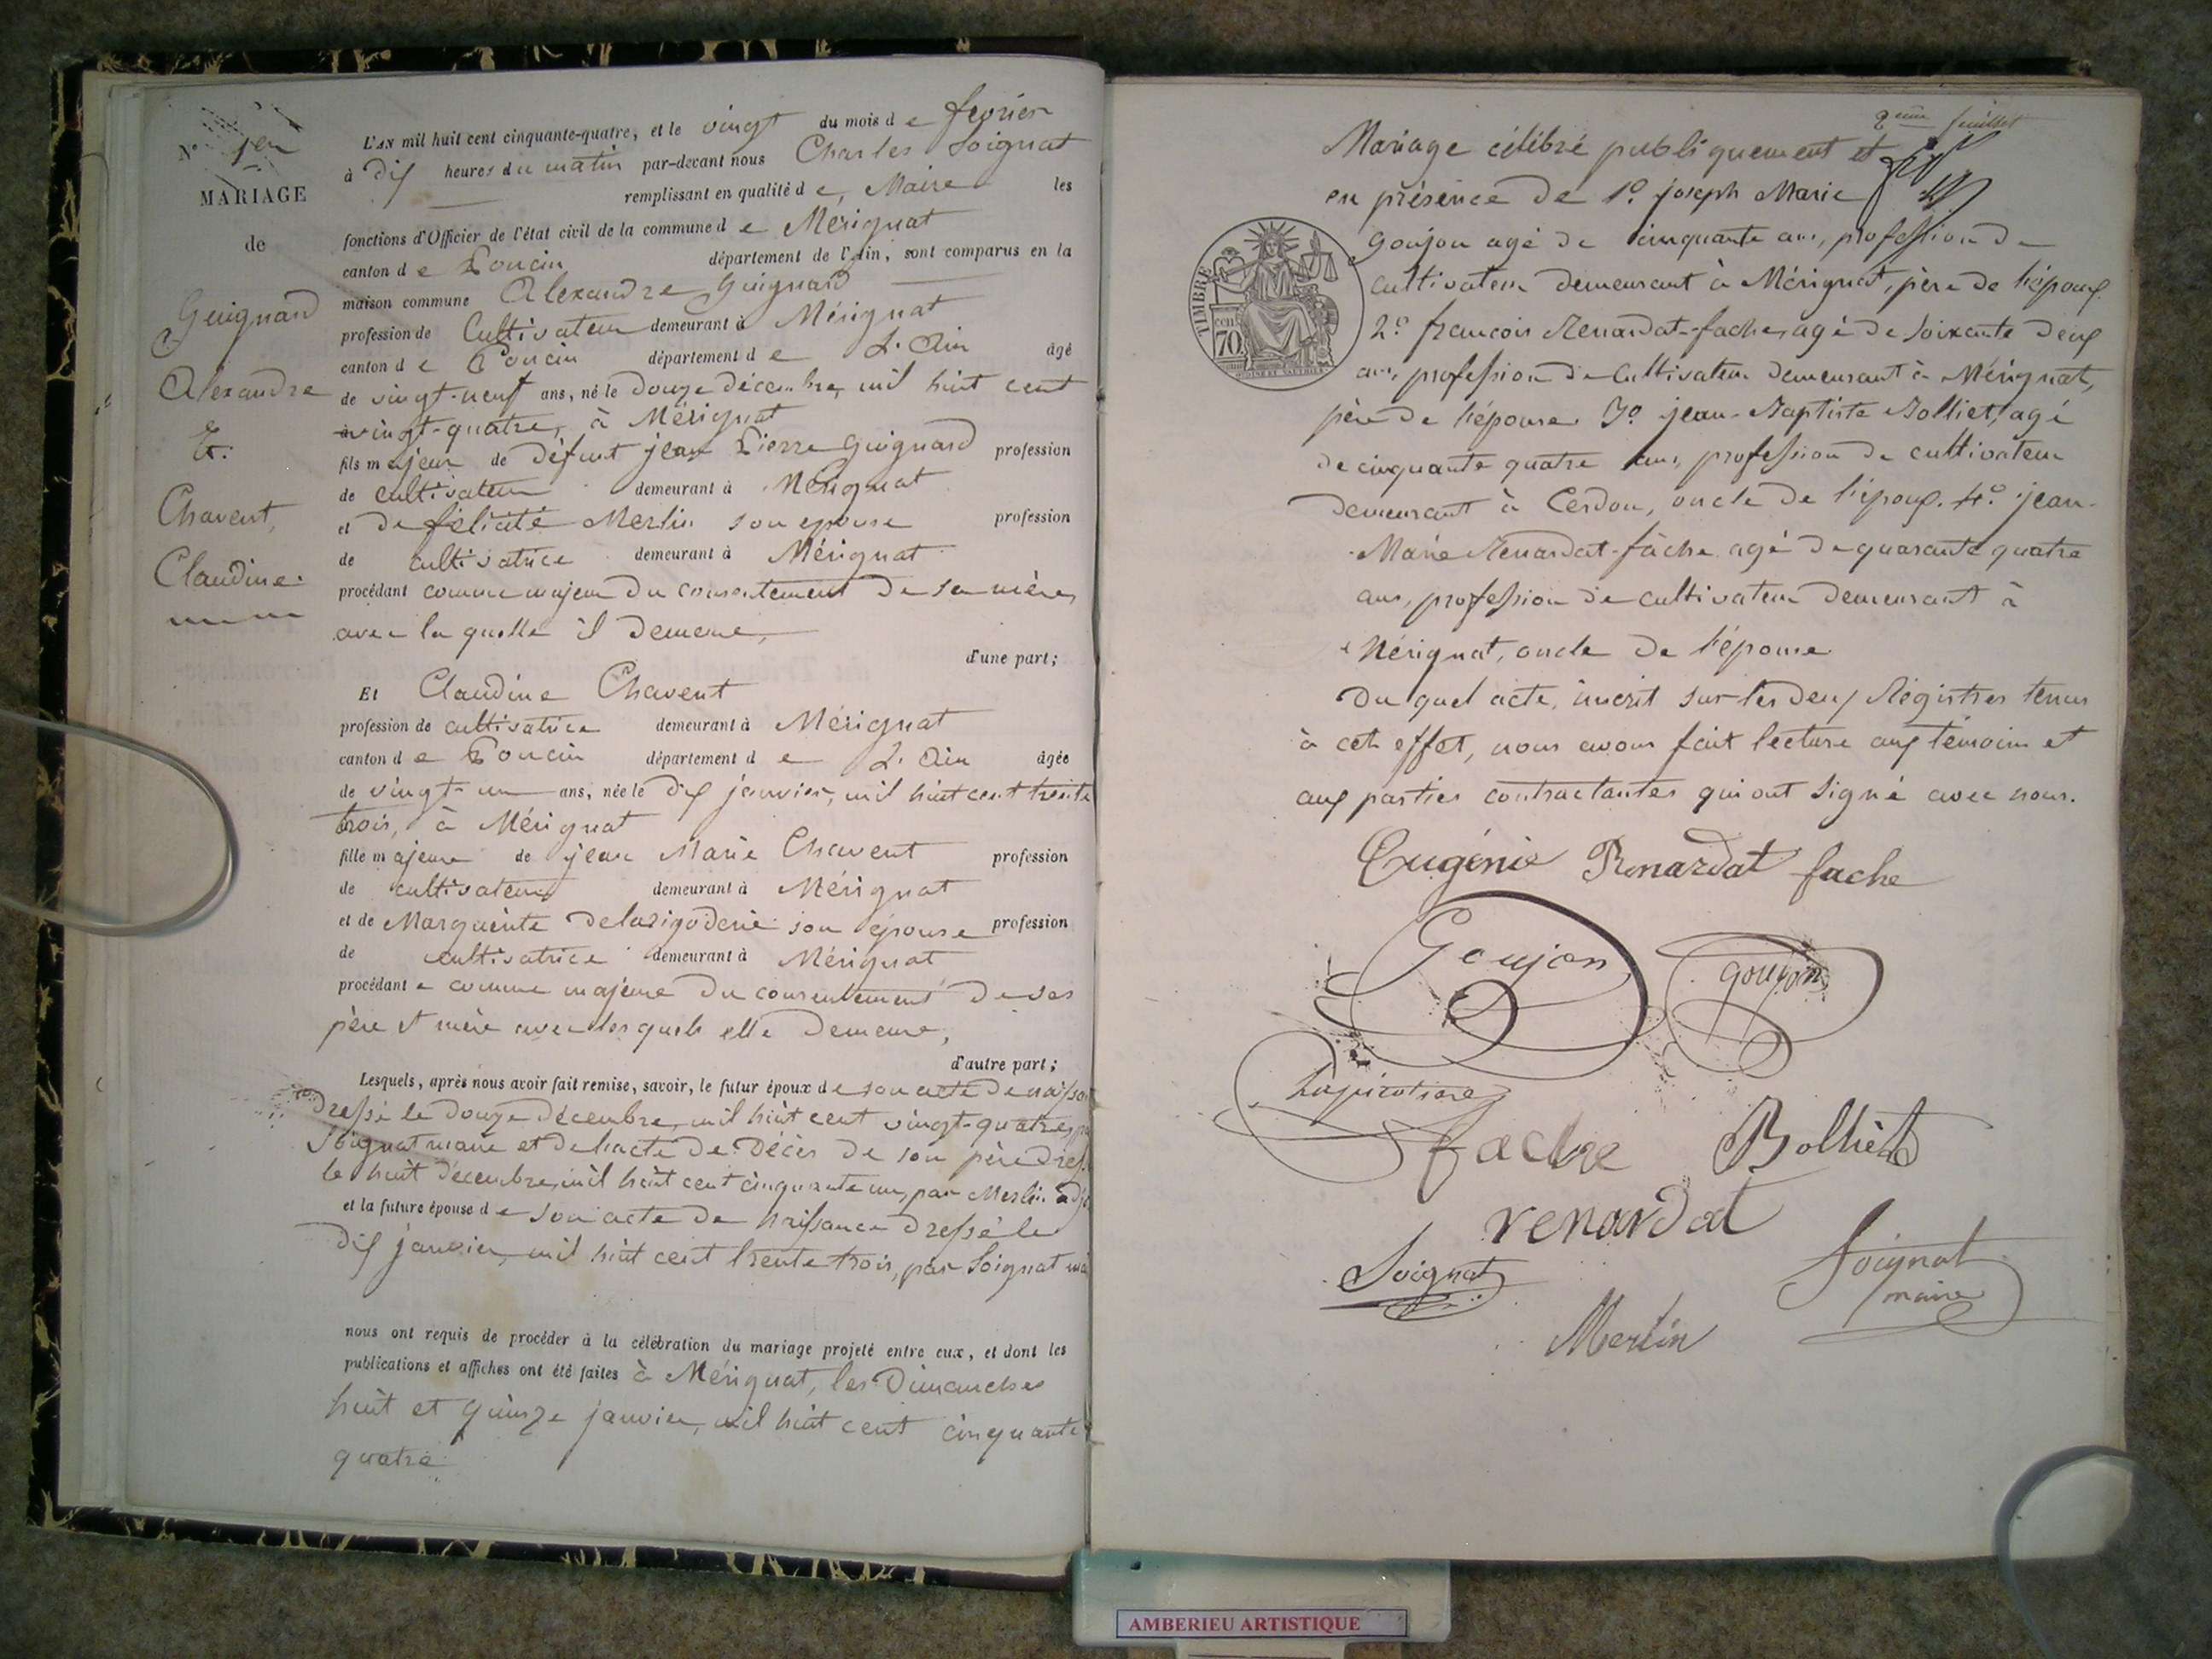 N° 1er
MARIAGE
de
Guignard
Alexandre
Et.
Chavent,
Claudine.
L'AN mil huit cent cinquante-quatre, et le vingt du mois de fevrier
à dix heures du matin par-devant nous Charles Soignat
remplissant en qualité de Maire les
fonctions d'Officier de l'état civil de la commune de Mérignat
canton de Poncin département de l'Ain, sont comparus en la
maison commune Alexandre Guignard
profession de Cultivateur demeurant à Mérignat
canton de Poncin département de L'Ain âgé
de vingt-neuf ans, né le douze décembre mil huit cent
vingt-quatre, à Mérignat
fils majeur de défunt jean Pierre Guignard profession
de cultivateur demeurant à Mérignat
et de félicité Merlin son epouse profession
de cultivatrice demeurant à Mérignat
procédant comme majeur du consentement de sa mère,
avec la quelle il demeure,
d'une part;
Et Claudine Chavent
profession de cultivatrice demeurant à Mérignat
canton de Poncin département de L'Ain âgée
de vingt-un ans, née le dix janvier, mil huit cent trente
trois, à Mérignat
fille majeure de jean Marie Chavent profession
de cultivateur demeurant à Mérignat
et de Marguerite delarigoderie son épouse profession
de cultivatrice demeurant à Mérignat
procédant e comme majeure du consentement de ses
père et mère avec les quels elle demeure,
d'autre part;
Lesquels, après nous avoir fait remise, savoir, le futur époux de son acte de naissan
dressé le douze décembre, mil huit cent vingt-quatre, pa
Soignat maire et de l'acte de décès de son père dres
le huit décembre, mil huit cent cinquante un, par Merlin adj
et la future épouse de son acte de naissance dressé le
dix janvier, mil huit cent trente trois, par Soignat mai
nous ont requis de procéder à la célébration du mariage projeté entre eux, et dont les
publications et affiches ont été faites à Mérignat, les Dimanches
huit et quinze janvier, mil huit cent cinquante
quatre
2eme feuillet
Mariage célébré publiquement et
en présence de 1.° joseph Marie
Goujon agé de cinquante ans, profession de
cultivateur demeurant à Mérignat, père de l'époux.
2.° francois Renardat-fache, agé de soixante deux
ans, profession de cultivateur demeurant à Mérignat,
père de l'épouse. 3.° jean-Baptiste Bolliet, agé
de cinquante quatre ans, profession de cultivateur
demeurant à Cerdon, oncle de l'époux. 4.° jean-
Marie Renardat-fâche agé de quarante quatre
ans, profession de cultivateur demeurant à
Mérignat, oncle de l'épouse.
Du quel acte, inscrit sur les deux Régistres tenus
à cet effet, nous avons fait lecture aux témoins et
aux parties contractantes qui ont signé avec nous.
TIMBRE
cen 70
Eugénie Renardat fache
Goujon goujon
fache Bolliet
renardat
Soignat Soignat
maire
Merlin
AMBERIEU ARTISTIQUE